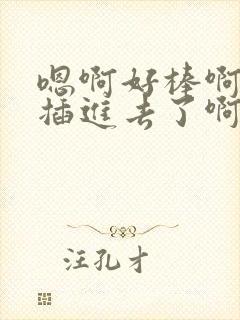 嗯啊好棒啊
插進去了啊
汪孔才